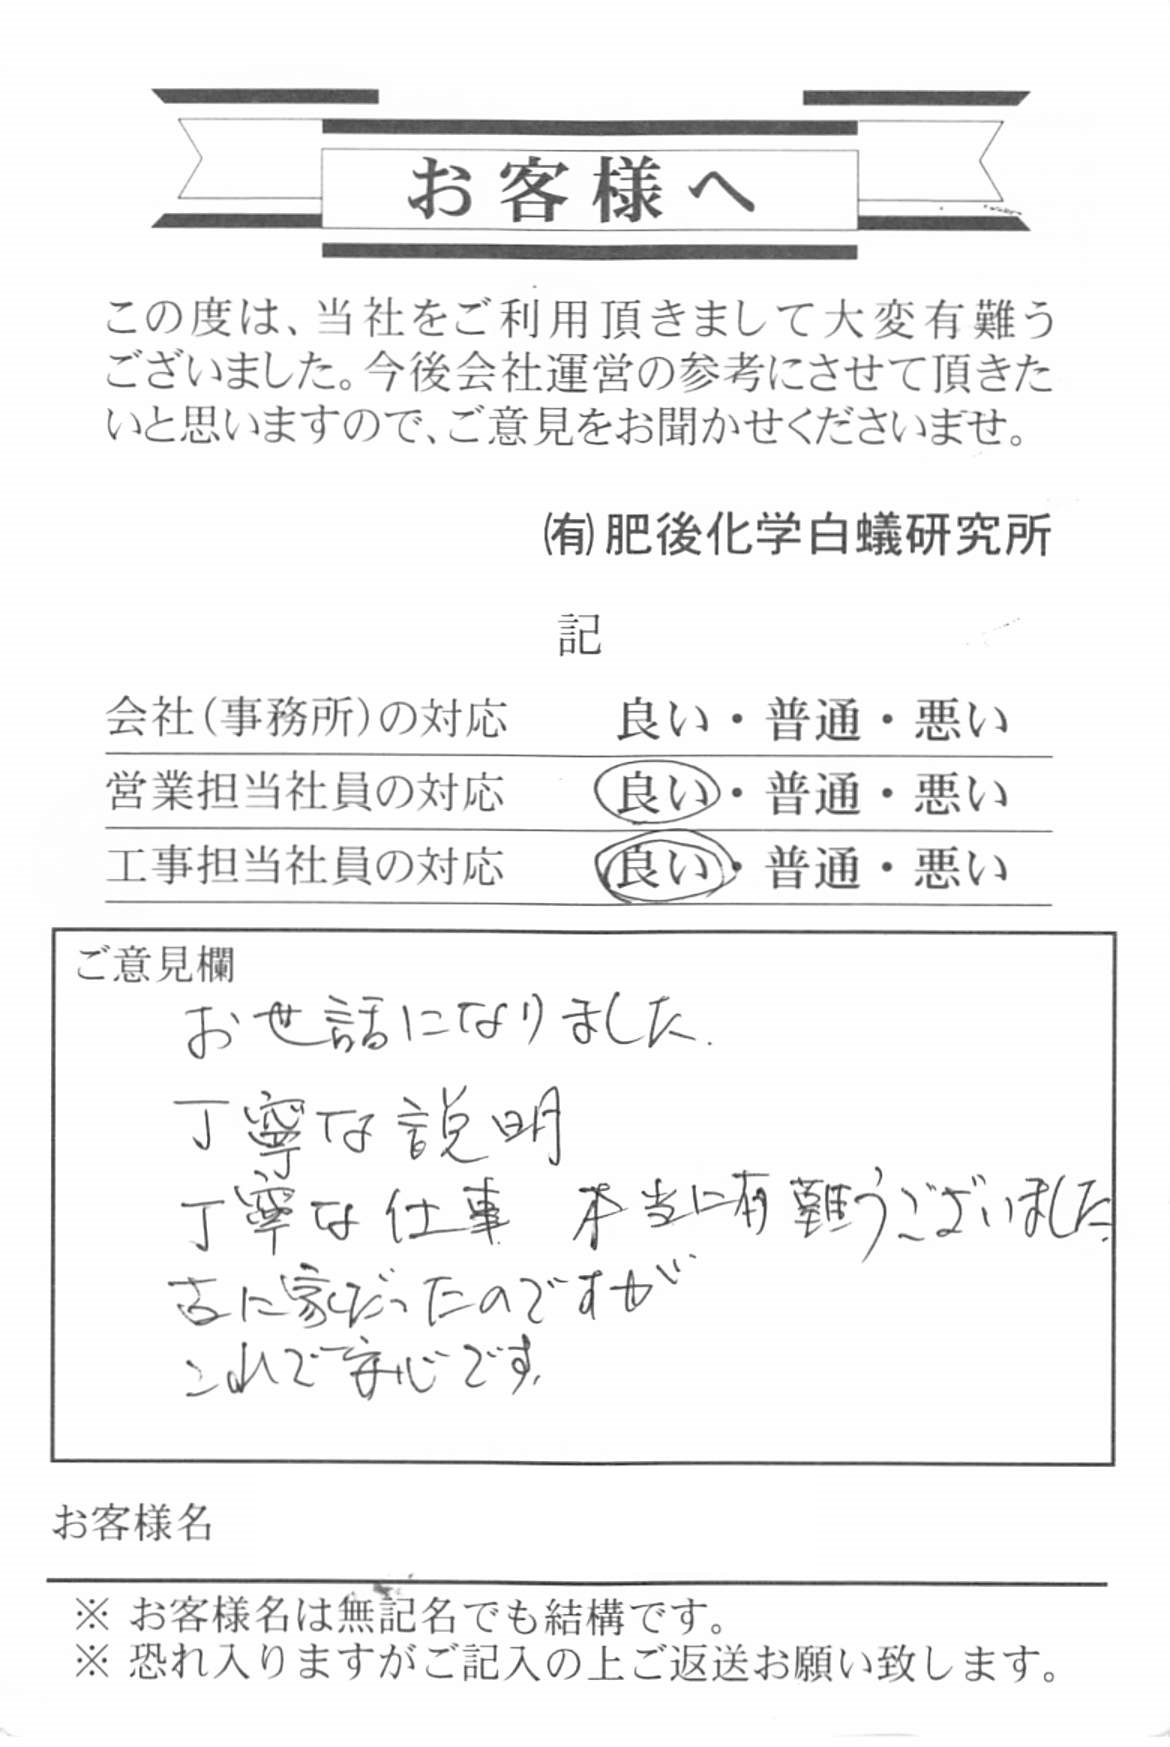 お客様へ
この度は、当社をご利用頂きまして大変有難う
ございました。今後会社運営の参考にさせて頂きた
いと思いますので、ご意見をお聞かせくださいませ。
㈲肥後化学白蟻研究所
記
会社(事務所)の対応 良い・普通・悪い
営業担当社員の対応 良い・普通・悪い
工事担当社員の対応 良い・普通・悪い
ご意見欄
お世話になりました.
丁寧な説明
丁寧な仕事 本当に有難うございました.
古に家だったのですが
これで安心です.
お客様名
※ お客様名は無記名でも結構です。
※ 恐れ入りますがご記入の上ご返送お願い致します。